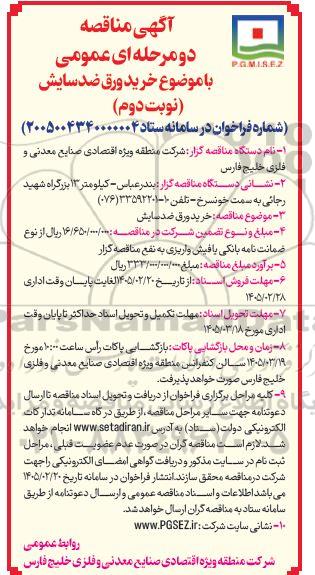 آگهی مناقصه
دو مرحله ای عمومی
با موضوع خرید ورق ضد سایش
(نوبت دوم)
P.G.M.I.S.E.Z
(شماره فراخوان در سامانه ستاد ۲۰۰۵۰۰۴۳۴۰۰۰۰۰۰۴)
۱- نام دستگاه مناقصه گزار : شرکت منطقه ویژه اقتصادی صنایع معدنی و
فلزی خلیج فارس
۲- نشانی دستگاه مناقصه گزار : بندرعباس- کیلومتر ۱۳ بزرگراه شهید
رجائی به سمت خونسرخ - تلفن ۲-۳۳۵۹۲۲۰۱ (۰۷۶)
۳- موضوع مناقصه : خرید ورق ضد سایش
۴- مبلغ و نوع تضمین شرکت در مناقصه : ۱۶/۶۵۰/۰۰۰/۰۰۰ ریال از نوع
ضمانت نامه بانکی یا فیش واریزی به نفع مناقصه گزار
۵- برآورد مبلغ مناقصه : مبلغ ۳۳۳/۰۰۰/۰۰۰/۰۰۰ ریال
۶- مهلت فروش اسناد : از تاریخ ۱۴۰۵/۰۲/۲۰ لغایت پایان وقت اداری
۱۴۰۵/۰۲/۲۸
۷- مهلت تحویل اسناد : مهلت تکمیل و تحویل اسناد حداکثر تا پایان وقت
اداری مورخ ۱۴۰۵/۰۳/۱۸
۸- زمان و محل بازگشایی پاکات : بازگشایی پاکات رأس ساعت ۱۰:۰۰ مورخ
۱۴۰۵/۰۳/۱۹ سالن کنفرانس منطقه ویژه اقتصادی صنایع معدنی و فلزی
خلیج فارس صورت خواهد پذیرفت.
۹- کلیه مراحل برگزاری فراخوان از دریافت و تحویل اسناد مناقصه تا ارسال
دعوتنامه جهت سایر مراحل مناقصه، از طریق درگاه سامانه تدارکات
الکترونیکی دولت (ستاد) به آدرس www.setadiran.ir انجام خواهد
شد. لازم است مناقصه گران در صورت عدم عضویت قبلی، مراحل
ثبت نام در سایت مذکور و دریافت گواهی امضای الکترونیکی را جهت
شرکت در مناقصه محقق سازند. انتشار فراخوان در سامانه تاریخ ۱۴۰۵/۰۲/۲۰
می باشد اطلاعات و اسناد مناقصه عمومی و ارسال دعوتنامه از طریق
سامانه ستاد به مناقصه گران ارسال خواهد شد.
۱۰- نشانی سایت شرکت : www.PGSEZ.ir
روابط عمومی
شرکت منطقه ویژه اقتصادی صنایع معدنی و فلزی خلیج فارس